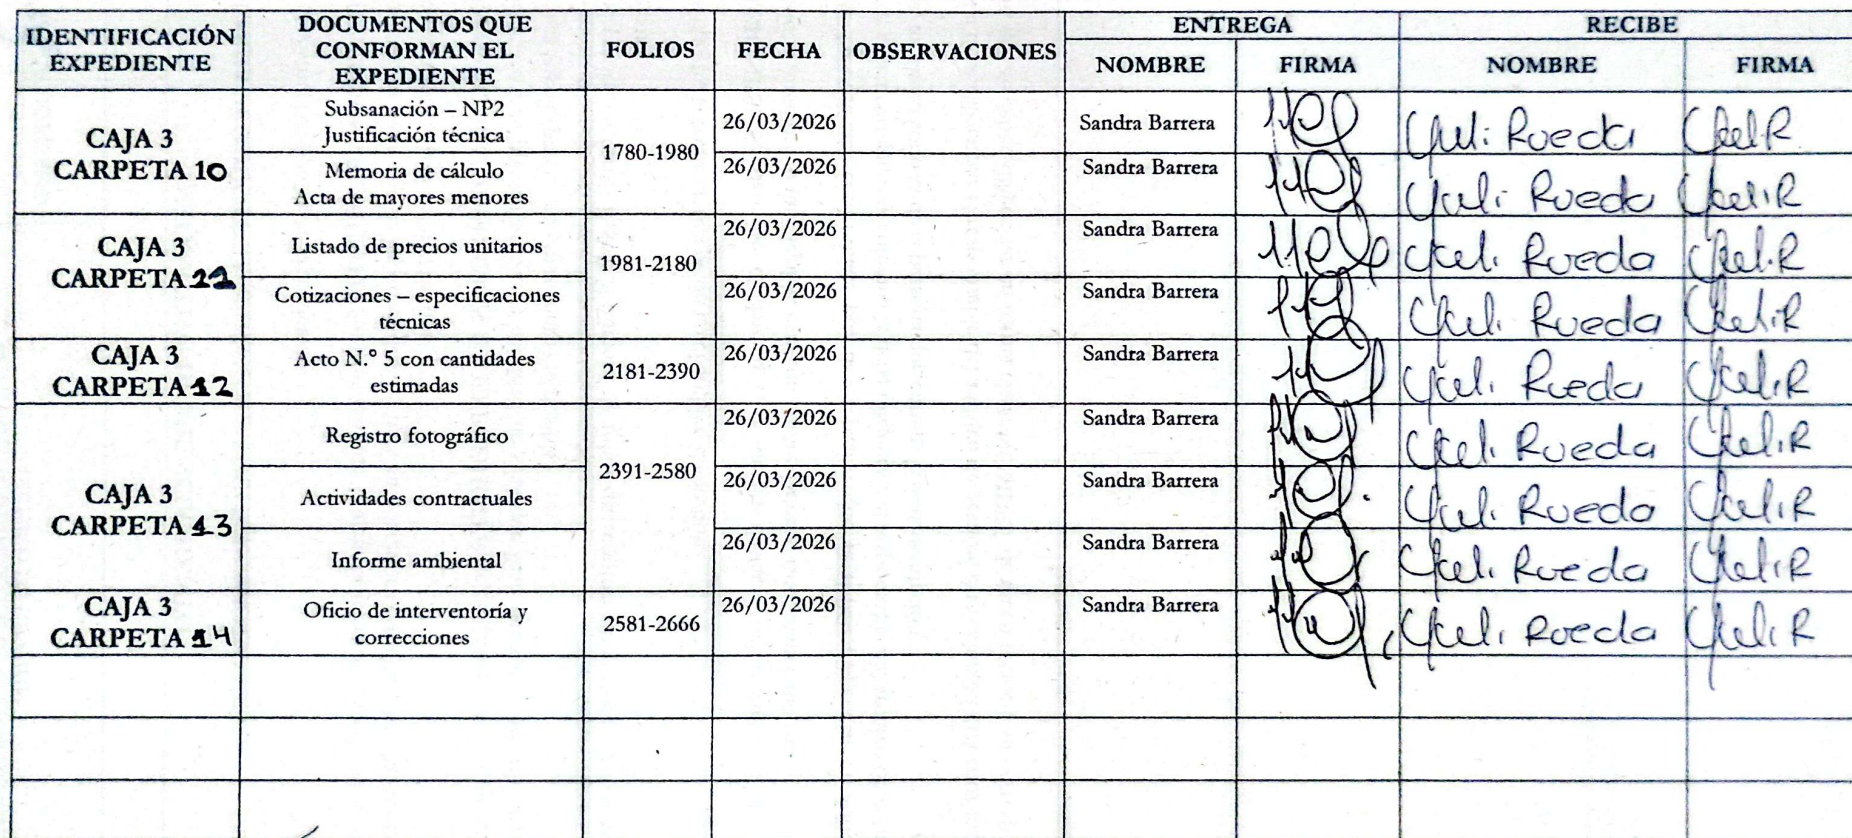 IDENTIFICACIÓN EXPEDIENTE DOCUMENTOS QUE CONFORMAN EL EXPEDIENTE FOLIOS FECHA OBSERVACIONES ENTREGA RECIBE
NOMBRE FIRMA NOMBRE FIRMA
CAJA 3
CARPETA 10
Subsanación – NP2
Justificación técnica
1780-1980
26/03/2026 Sandra Barrera Yuli Rueda Yuli R
Memoria de cálculo
Acta de mayores menores
26/03/2026 Sandra Barrera Yuli Rueda Yuli R
CAJA 3
CARPETA 11
Listado de precios unitarios
1981-2180
26/03/2026 Sandra Barrera Yuli Rueda Yuli R
Cotizaciones – especificaciones
técnicas
26/03/2026 Sandra Barrera Yuli Rueda Yuli R
CAJA 3
CARPETA 12
Acto N.° 5 con cantidades
estimadas
2181-2390
26/03/2026 Sandra Barrera Yuli Rueda Yuli R
CAJA 3
CARPETA 13
Registro fotográfico
2391-2580
26/03/2026 Sandra Barrera Yuli Rueda Yuli R
Actividades contractuales
26/03/2026 Sandra Barrera Yuli Rueda Yuli R
Informe ambiental
26/03/2026 Sandra Barrera Yuli Rueda Yuli R
CAJA 3
CARPETA 14
Oficio de interventoría y
correcciones
2581-2666
26/03/2026 Sandra Barrera Yuli Rueda Yuli R